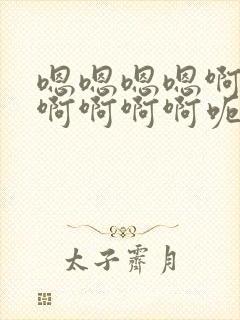 嗯嗯嗯嗯啊
啊啊啊啊呃
太子霽月